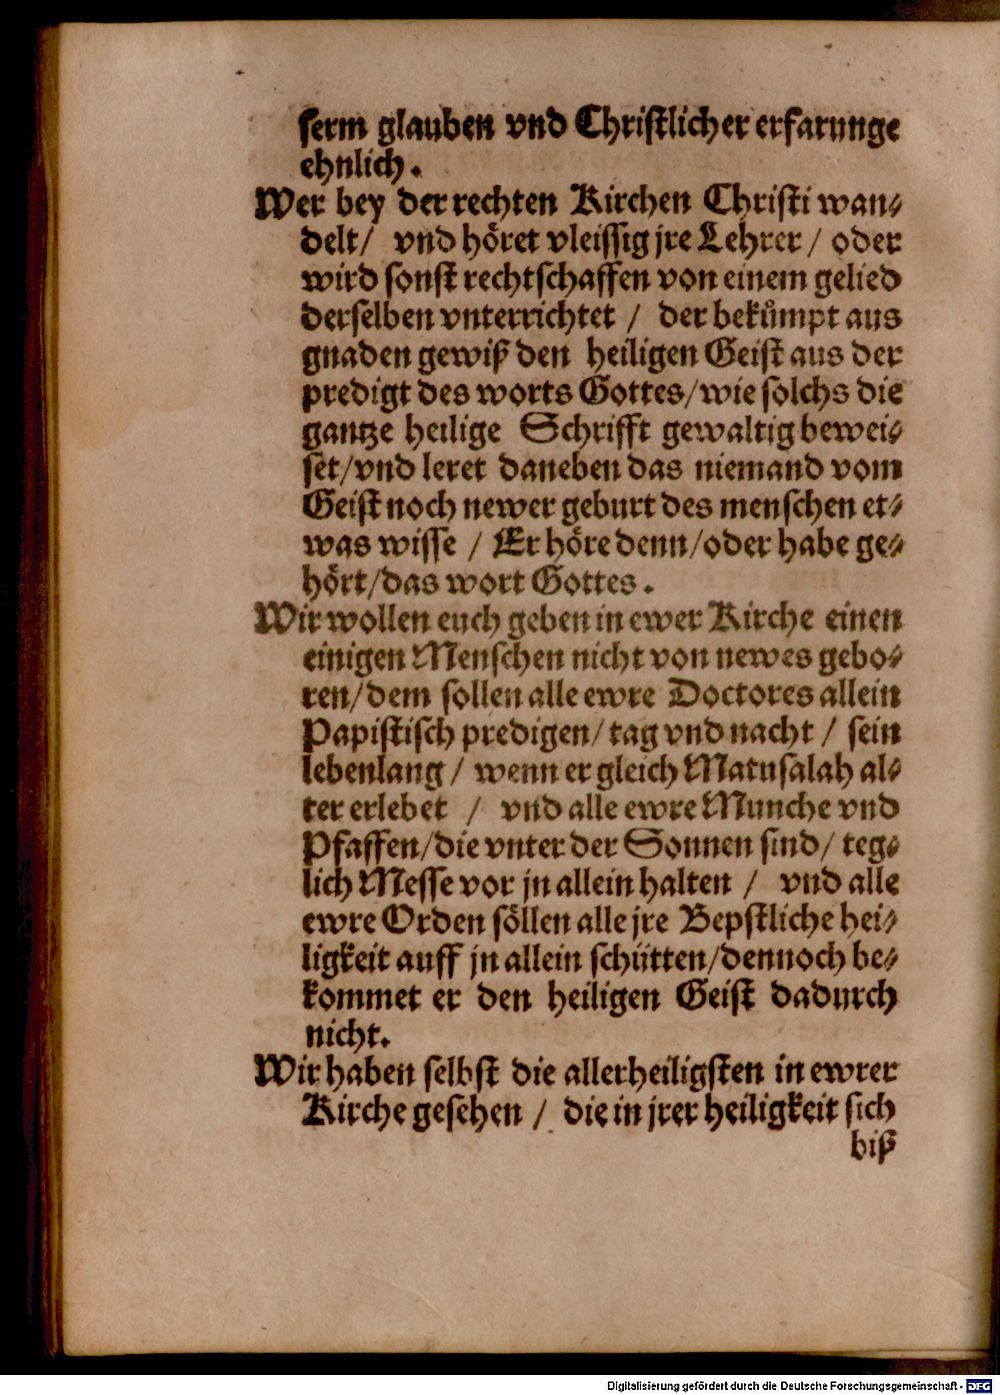 serm glauben vnd Christlicher erfarunge
ehnlich.
Wer bey der rechten Kirchen Christi wan⸗
delt/ vnd höret vleissig jre Lehrer / oder
wird sonst rechtschaffen von einem gelied
derselben vnterrichtet / der bekůmpt aus
gnaden gewiß den heiligen Geist aus der
predigt des worts Gottes/wie solchs die
gantze heilige Schrifft gewaltig bewei⸗
set/vnd leret daneben das niemand vom
Geist noch newer geburt des menschen et⸗
was wisse / Er höre denn/oder habe ge⸗
hört/das wort Gottes.
Wir wollen euch geben in ewer Kirche einen
einigen Menschen nicht von newes gebo⸗
ren/dem sollen alle ewre Doctores allein
Papistisch predigen/tag vnd nacht / sein
lebenlang / wenn er gleich Matusalah al⸗
ter erlebet / vnd alle ewre Munche vnd
Pfaffen/die vnter der Sonnen sind/ teg⸗
lich Messe vor jn allein halten / vnd alle
ewre Orden söllen alle jre Bepstliche hei⸗
ligkeit auff jn allein schütten/dennoch be⸗
kommet er den heiligen Geist dadurch
nicht.
Wir haben selbst die allerheiligsten in ewrer
Kirche gesehen / die in jrer heiligkeit sich
biß
Digitalisierung gefördert durch die Deutsche Forschungsgemeinschaft - DFG